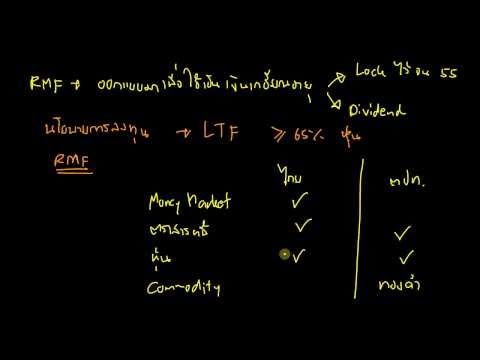 RMF → ออกแบบมาเพื่อใช้เป็นเงินเกษียณอายุ → Lock ไว้จน 55
→ Dividend
นโยบายการลงทุน → LTF ≥ 65% หุ้น
RMF
ไทย ตปท.
Money Market ✓
ตราสารหนี้ ✓ ✓
หุ้น ✓ ✓
Commodity ทองคำ